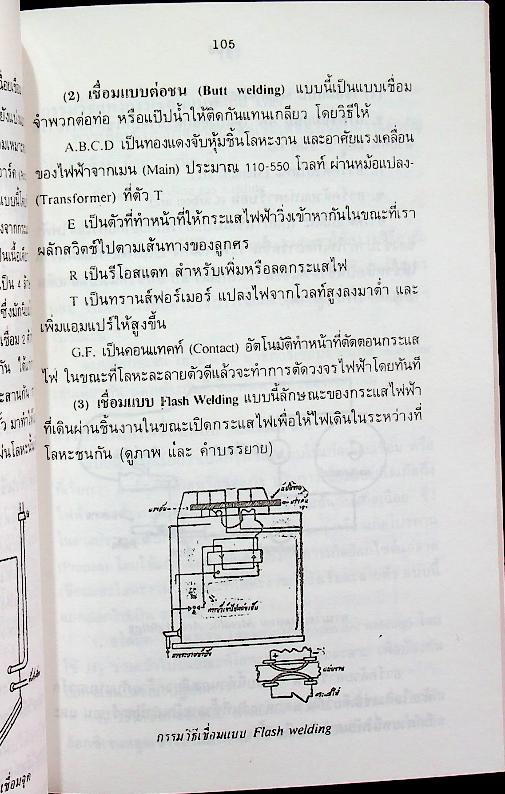 105
(2) เชื่อมแบบต่อชน (Butt welding) แบบนี้เป็นแบบเชื่อม
จำพวกต่อท่อ หรือแป๊ปน้ำให้ติดกันแทนเกลียว โดยวิธีให้
A.B.C.D เป็นทองแดงจับหุ้มชิ้นโลหะงาน และอาศัยแรงเคลื่อน
ของไฟฟ้าจากเมน (Main) ประมาณ 110-550 โวลท์ ผ่านหม้อแปลง-
(Transformer) ที่ตัว T
E เป็นตัวที่ทำหน้าที่ให้กระแสไฟฟ้าวิ่งเข้าหากันในขณะที่เรา
ผลักสวิตช์ไปตามเส้นทางของลูกศร
R เป็นรีโอสแตท สำหรับเพิ่มหรือลดกระแสไฟ
T เป็นทรานส์ฟอร์เมอร์ แปลงไฟจากโวลท์สูงลงมาต่ำ และ
เพิ่มแอมแปร์ให้สูงขึ้น
G.F. เป็นคอนแทคท์ (Contact) อัตโนมัติทำหน้าที่ตัดตอนกระแส
ไฟ ในขณะที่โลหะละลายตัวดีแล้วจะทำการตัดวงจรไฟฟ้าโดยทันที
(3) เชื่อมแบบ Flash Welding แบบนี้ลักษณะของกระแสไฟฟ้า
ที่เดินผ่านชิ้นงานในขณะเปิดกระแสไฟเพื่อให้ไฟเดินในระหว่างที่
โลหะชนกัน (ดูภาพ และ คำบรรยาย)
กรรมวิธีเชื่อมแบบ Flash welding